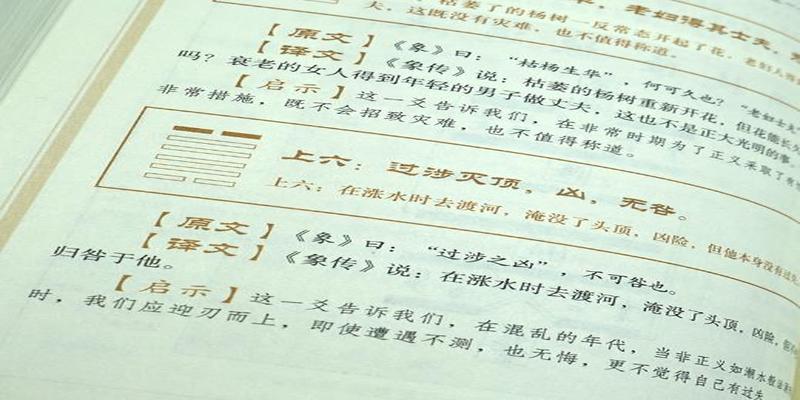 枯萎了的杨树一反常态开起了花，老妇
夫，这既没有灾难，也不值得称道。
【原文】《象》曰：“枯杨生华”，何可久也？“老妇士夫
【译文】《象传》说：枯萎的杨树重新开花，但花能长久
吗？衰老的女人得到年轻的男子做丈夫，这也不是正大光明的事。
【启示】这一爻告诉我们，在非常时期为了正义采取了
非常措施，既不会招致灾难，也不值得称道。
上六：过涉灭顶，凶，无咎。
上六：在涨水时去渡河，淹没了头顶，凶险，但他本身没有过失
【原文】《象》曰：“过涉之凶”，不可咎也。
【译文】《象传》说：在涨水时去渡河，淹没了头顶，凶险，
归咎于他。
【启示】这一爻告诉我们，在混乱的年代，当非正义如潮水般
时，我们应迎刃而上，即使遭遇不测，也无悔，更不觉得自己有过失